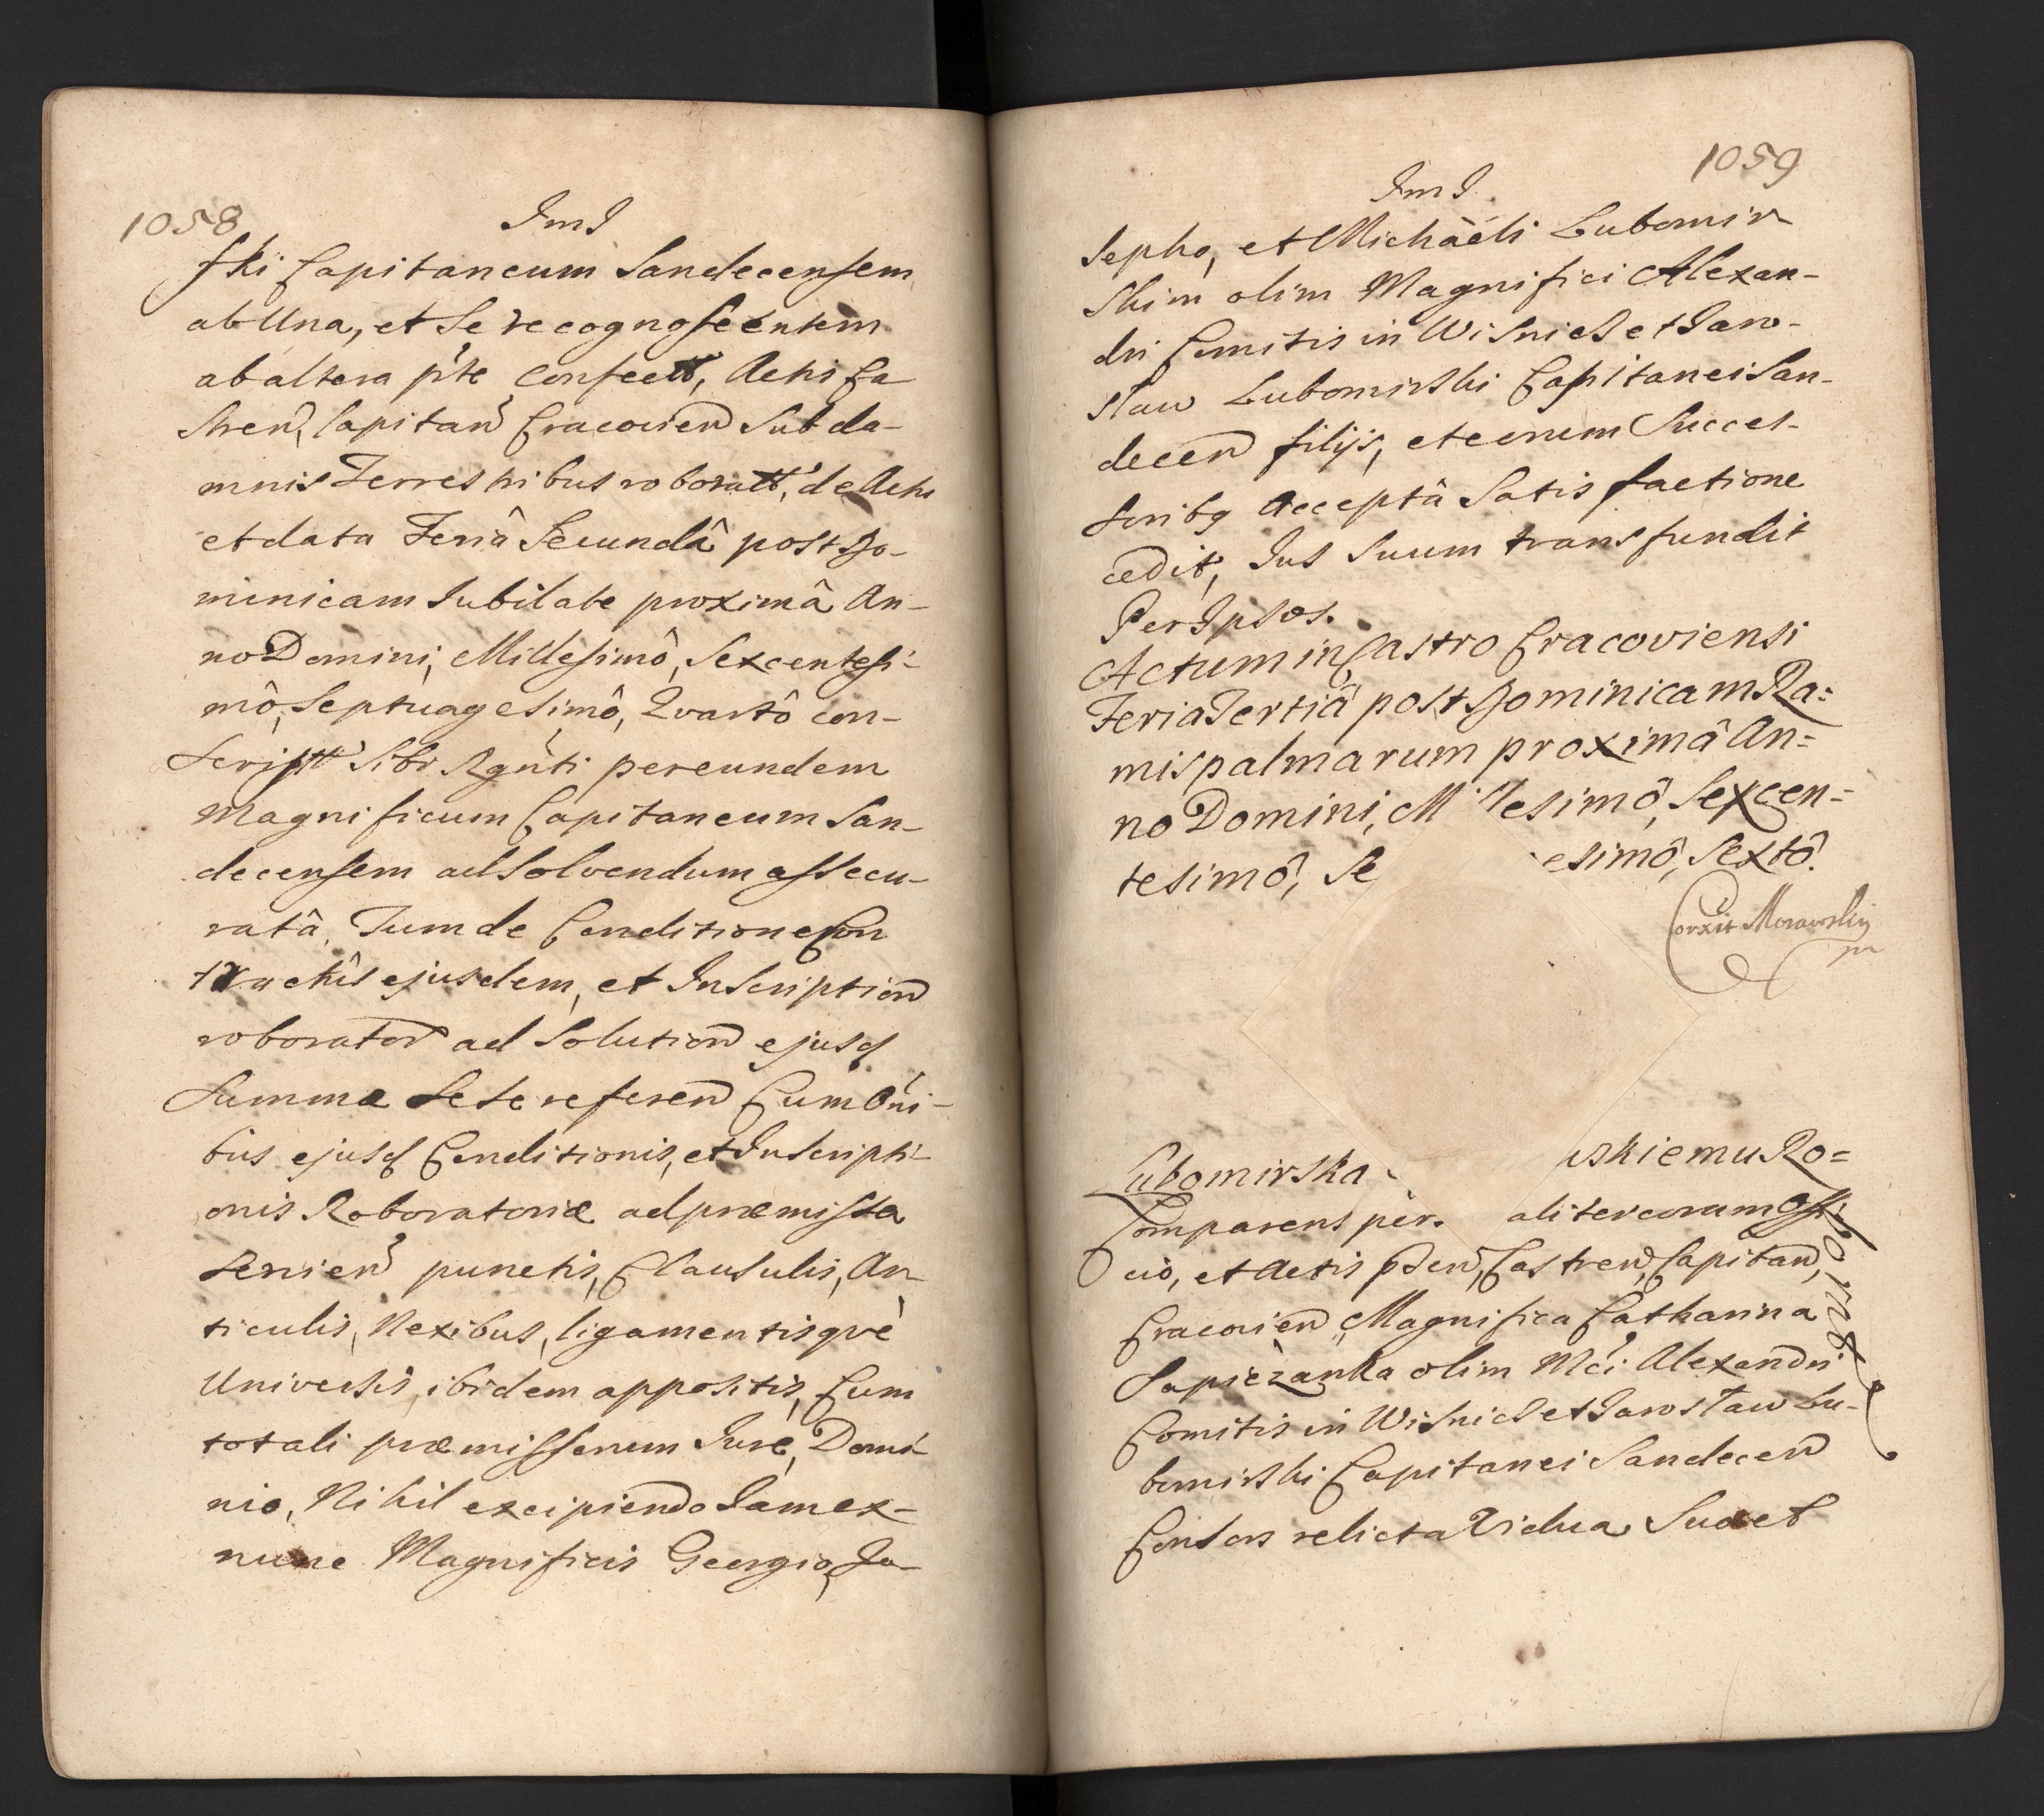 1058
ImJ
ski Capitaneum Sandecensem
ab Una, et Se recognoscentem
ab altera p̃te confectt, Actis Ca
stren̄, Capitan̄ Cracovien̄ Sub da-
mnis Terrestribus roboratt, de Actu
et data Feriâ Secundâ post Do-
minicam Iubilate proximâ An-
no Domini, Millesimô, Sexcentesi-
mô, Septuagesimô, Qvartô con-
script Sibi Rgnti per eundem
Magnificum Capitaneum San-
decensem ad Solvendum assecu-
ratâ, Tum de Conditione Con
tractûs ejusdem, et Inscription̄
roborator̄ ad Solution̄ ejusd
Summæ Sese referen̄ Cum Õni-
bus ejusd Conditionis, et Inscripti-
onis Roboratoriæ ad præmissa
Servien̄ punctis, Clausulis, Ar
ticulis, Nexibus, ligamentisqvè
Universis, ibidem appositis, Cum
totali præmissorum Iure, Domi
nio, Nihil excipiendo Iam ex-
nunc Magnificis Georgio, Jo-
1059
ImJ
sepho, et Michaëli Lubomir
skim olim Magnifici Alexan-
dri Comitis in Wisnicz et Jaro-
slaw Lubomirski Capitanei San-
decen̄ filijs, et eorum Succes-
soribq Acceptâ Satisfactione
cedit, Ius Suum transfundit
Per Ipsos.
Actum in Castro Cracoviensi
Feria Tertiâ post Dominicam Ra=
mispalmarum proximâ An=
no Domini, M lesimô, Sexcen=
tesimô, Se esimô, Sextô.
Corxit Morawski
m
Lubomirska uskiemu Ro=
borat
Comparens per. aliter coram Offi
cio, et Actis p̄sen̄, Castren̄, Capitan̄,
Cracovien̄, Magnifica Catharina
Sapieżanka olim Mci Alexandri
Comitis in Wisnicz et Jarosław Lu-
bomirski Capitanei Sandecen̄
Consors relicta Vidua Sua et